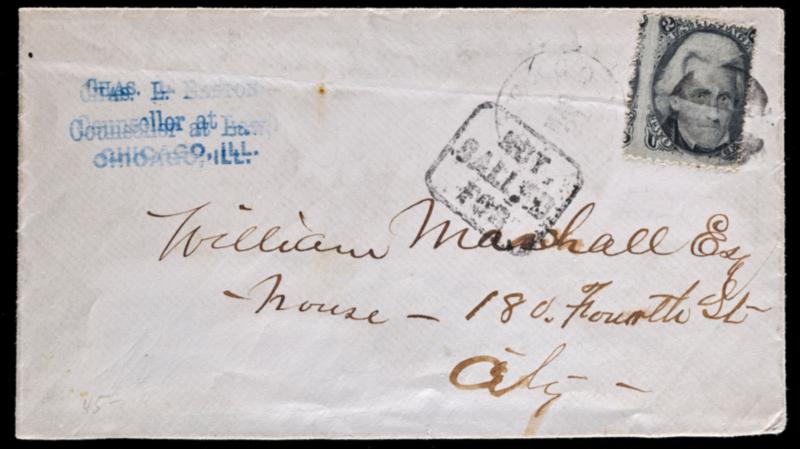 Chas. L. Easton
Counsellor at Law
CHICAGO, ILL.
NOT.
CALLED
FOR
William Marshall Esq
- House - 180. Fourth St
City -
45-